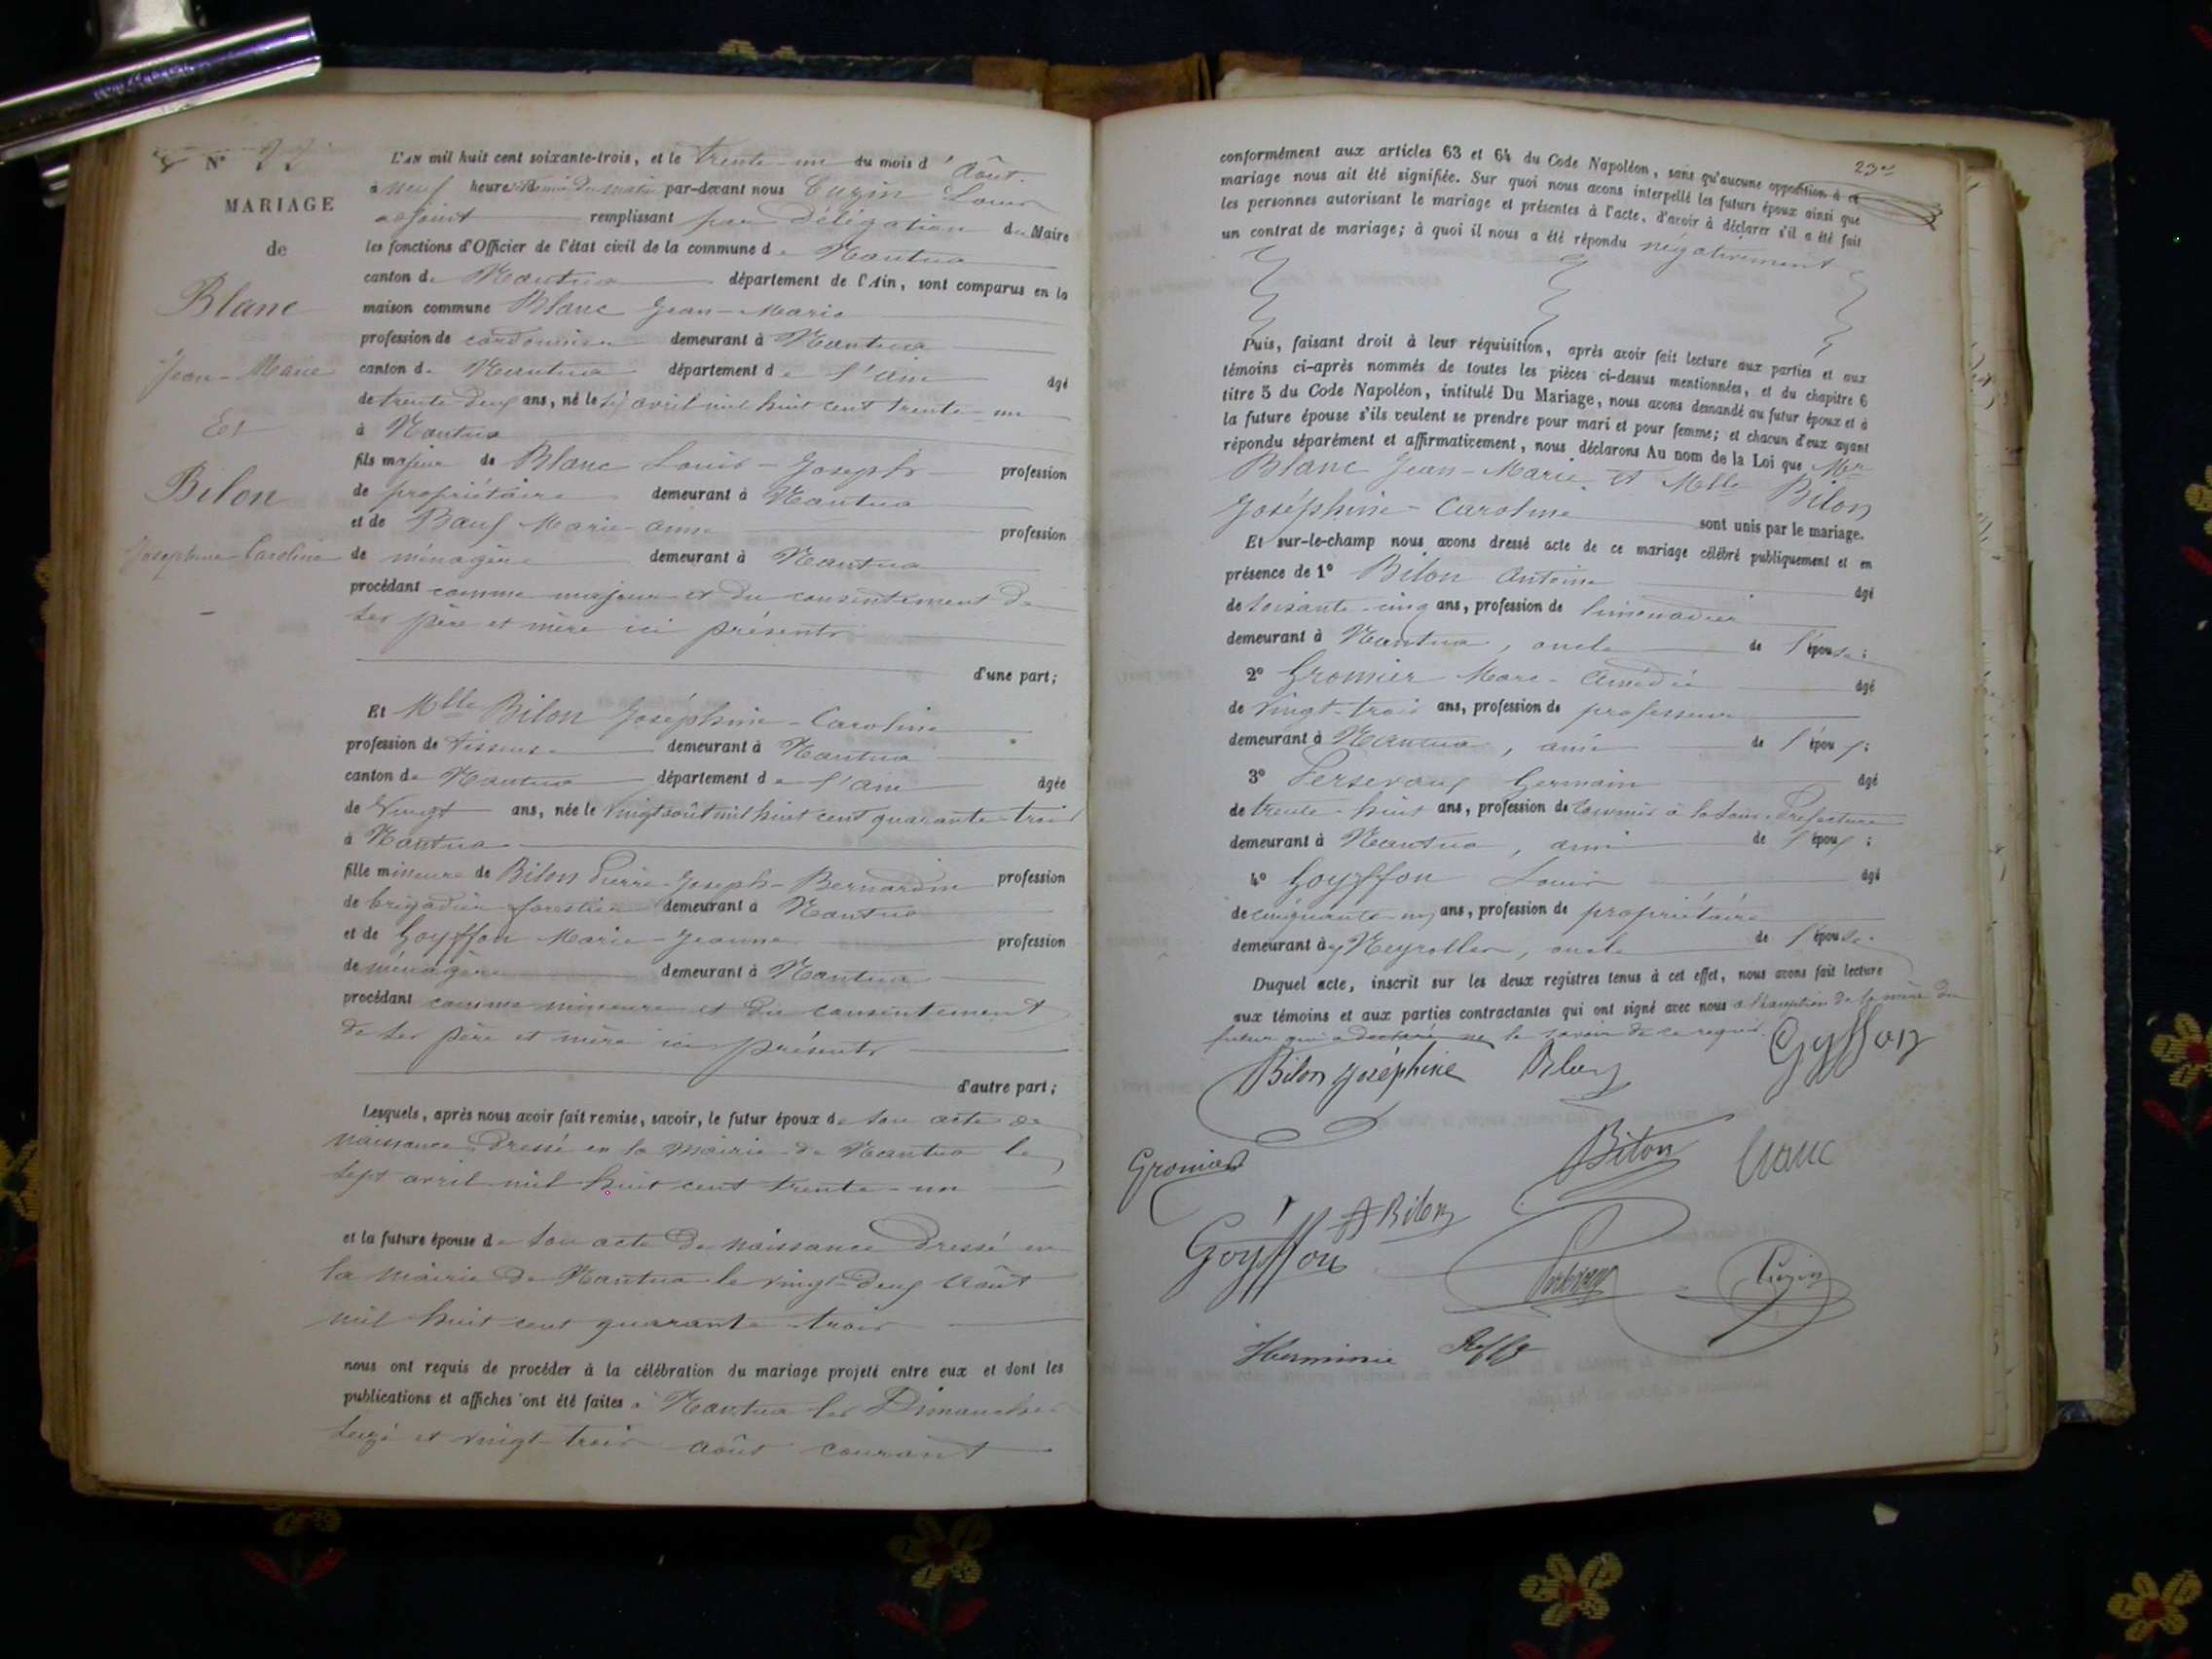 N° 22
MARIAGE
de
Blanc
Jean-Marie
Et
Bilon
Joséphine-Caroline
L'AN mil huit cent soixante-trois, et le trente-un du mois d'Août
à neuf heures du matin par-devant nous Cuzin Louis
adjoint remplissant par délégation du Maire
les fonctions d'Officier de l'état civil de la commune de Nantua
canton de Nantua département de l'Ain, sont comparus en la
maison commune Blanc Jean-Marie
profession de cordonnier demeurant à Nantua
canton de Nantua département de l'Ain âgé
de trente-deux ans, né le six avril mil huit cent trente-un
à Nantua
fils majeur de Blanc Louis-Joseph profession
de propriétaire demeurant à Nantua
et de Bauf Marie-Anne profession
de ménagère demeurant à Nantua
procédant comme majeur et du consentement de
ses père et mère ici présents
d'une part;
Et Mlle Bilon Joséphine-Caroline
profession de tisseuse demeurant à Nantua
canton de Nantua département de l'Ain âgée
de vingt ans, née le vingt août mil huit cent quarante-trois
à Nantua
fille mineure de Bilon Pierre-Joseph-Bernardin profession
de brigadier forestier demeurant à Nantua
et de Goyffon Marie-Jeanne profession
de ménagère demeurant à Nantua
procédant comme mineure et du consentement
de ses père et mère ici présents
d'autre part;
Lesquels, après nous avoir fait remise, savoir, le futur époux de son acte de
naissance dressé en la Mairie de Nantua le
sept avril mil huit cent trente-un
et la future épouse de son acte de naissance dressé en
la Mairie de Nantua le vingt-deux Août
mil huit cent quarante-trois
nous ont requis de procéder à la célébration du mariage projeté entre eux et dont les
publications et affiches ont été faites à Nantua les Dimanches
seize et vingt-trois août courant
conformément aux articles 63 et 64 du Code Napoléon, sans qu'aucune opposition à ce
mariage nous ait été signifiée. Sur quoi nous avons interpellé les futurs époux ainsi que
les personnes autorisant le mariage et présentes à l'acte, d'avoir à déclarer s'il a été fait
un contrat de mariage; à quoi il nous a été répondu négativement
Puis, faisant droit à leur réquisition, après avoir fait lecture aux parties et aux
témoins ci-après nommés de toutes les pièces ci-dessus mentionnées, et du chapitre 6
titre 5 du Code Napoléon, intitulé Du Mariage, nous avons demandé au futur époux et à
la future épouse s'ils veulent se prendre pour mari et pour femme; et chacun d'eux ayant
répondu séparément et affirmativement, nous déclarons Au nom de la Loi que Mr
Blanc Jean-Marie et Mlle Bilon
Joséphine-Caroline sont unis par le mariage.
Et sur-le-champ nous avons dressé acte de ce mariage célébré publiquement et en
présence de 1° Bilon Antoine âgé
de soixante-cinq ans, profession de limonadier
demeurant à Nantua, oncle de l'épouse;
2° Gromier Marc-Amédée âgé
de vingt-trois ans, profession de professeur
demeurant à Nantua, ami de l'époux;
3° Persevaux Germain âgé
de trente-huit ans, profession de commis à la Sous-Préfecture
demeurant à Nantua, ami de l'époux;
4° Goyffon Louis âgé
de cinquante- ans, profession de propriétaire
demeurant à Neyrolles, oncle de l'épouse.
Duquel acte, inscrit sur les deux registres tenus à cet effet, nous avons fait lecture
aux témoins et aux parties contractantes qui ont signé avec nous à l'exception de la mère du
futur qui a déclaré ne le savoir de ce requis.
Bilon Joséphine Blanc Goyffon
Gromier Bilon Blanc
Goyffon A Bilon
Cuzin
Herminie